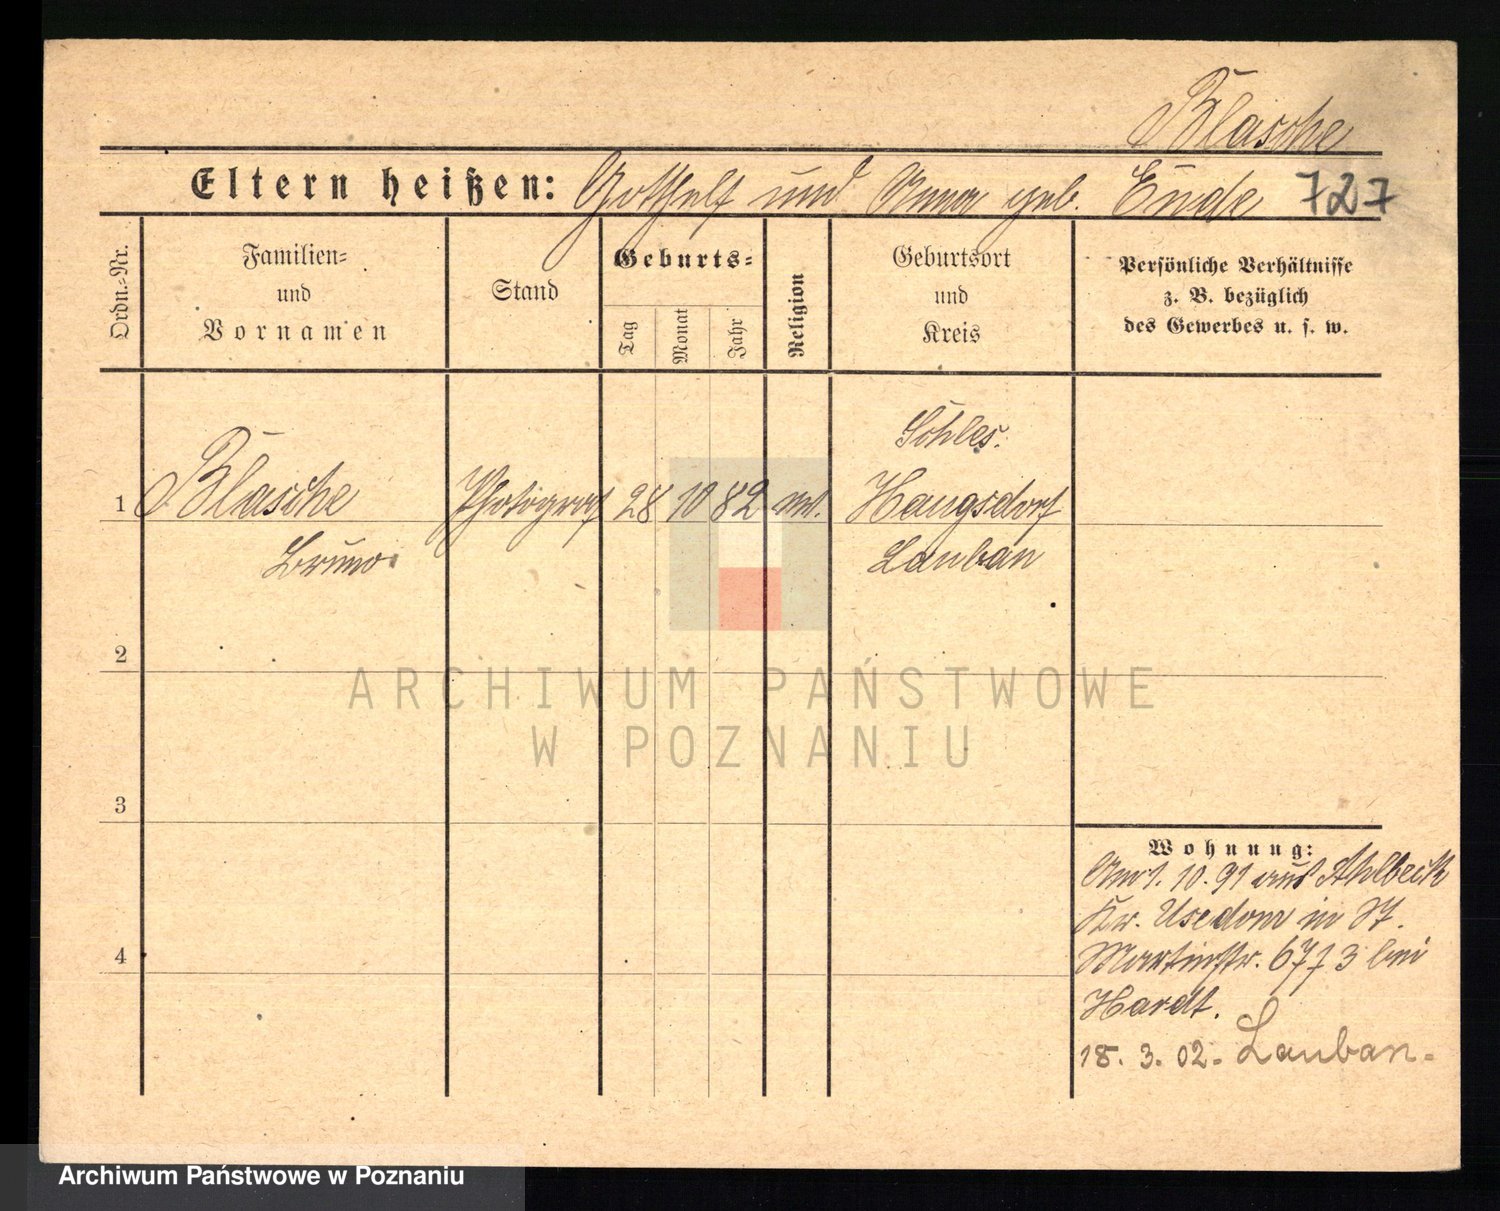 Blasche
Eltern heißen: Gotthelf und Anna geb. Ende 727
Ordn.-Nr.
Familien-
und
Vornamen
Stand
Geburts-
Tag
Monat
Jahr
Religion
Geburtsort
und
Kreis
Persönliche Verhältnisse
z. B. bezüglich
des Gewerbes u. s. w.
Schles.
1 Blasche Photograf 28 10 82 Haugsdorf
Bruno Lauban
2
ARCHIWUM PAŃSTWOWE
W POZNANIU
3
Wohnung:
1. 10. 91 aus Ahlbeck
Kr. Usedom in St.
Martinstr. 67 3 bei
Hardt.
18. 3. 02. Lauban.
4
Archiwum Państwowe w Poznaniu